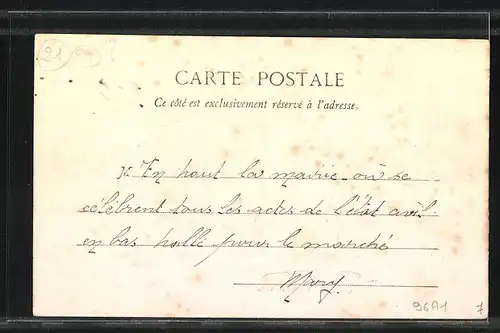 21
CARTE POSTALE
Ce côté est exclusivement réservé à l'adresse.
En haut la mairie où se
célèbrent tous les actes de l'état civil
en bas halle pour le marché
Mary
96A1
7